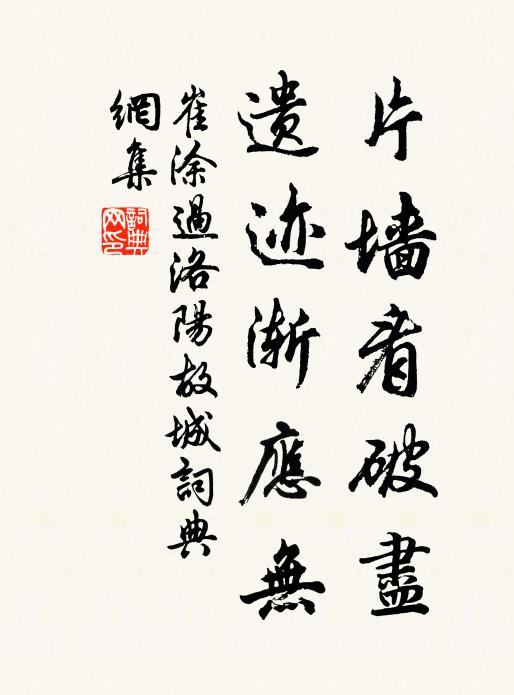 片墙看破盡
遗迹渐應無
崔涂過洛陽故城詞典
網集
詞典
网印